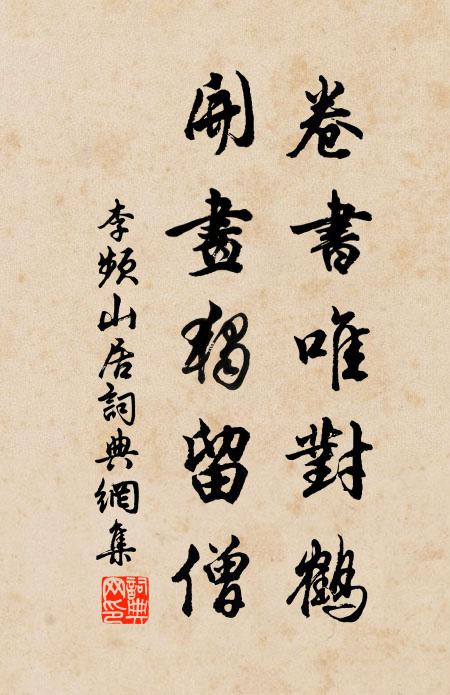 卷書唯對鶴
開畫獨留僧
李頻山居詞典網集
詞典網印